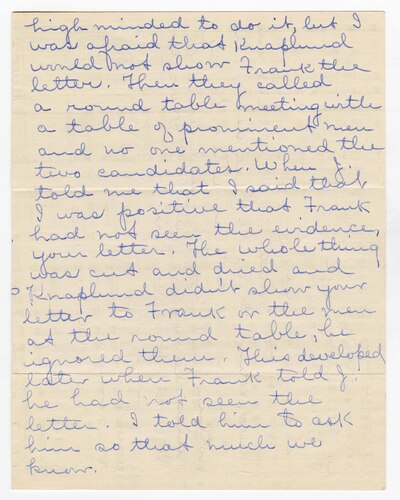 high minded to do it, but I
was afraid that Knaplund
would not show Frank the
letter. Then they called
a round table meeting with
a table of prominent men
and no one mentioned the
two candidates. When J.
told me that I said that
I was positive that Frank
had not seen the evidence,
your letter. The whole thing
was cut and dried and
Knaplund didn't show your
letter to Frank or the men
at the round table, he
ignored them. This developed
later when Frank told J.
he had not seen the
letter. I told him to ask
him so that much we
know.